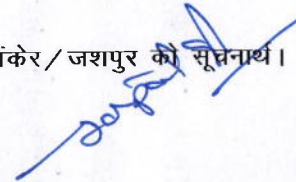 ंकेर/जशपुर को सूचनार्थ।